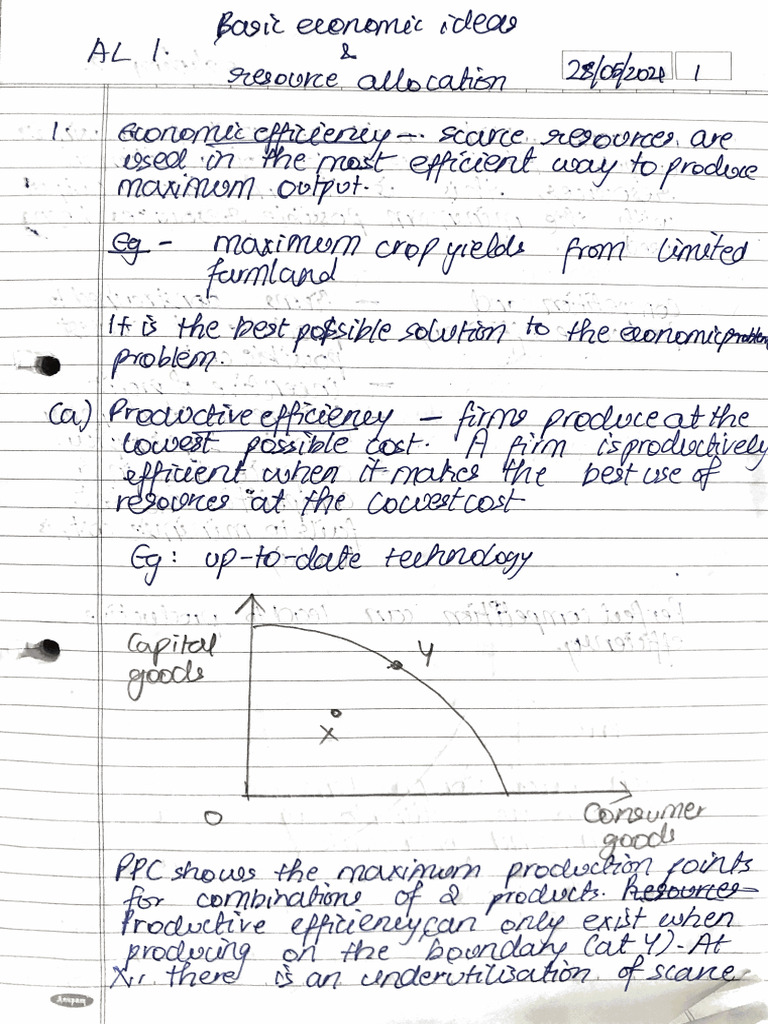 Basic economic ideas
AL 1. &
resource allocation
28/05/2021 1
1. Economic efficiency - scarce resources are
used in the most efficient way to produce
maximum output.
Eg - maximum crop yields from limited
farmland
It is the best possible solution to the economic problem
problem.
(a.) Productive efficiency - firms produce at the
lowest possible cost. A firm is productively
efficient when it makes the best use of
resources at the lowest cost
Eg: up-to-date technology
Capital
goods
Y
X
O
Consumer
goods
PPC shows the maximum production points
for combinations of 2 products. Resources
Productive efficiency can only exist when
producing on the boundary (at Y). At
X, there is an underutilisation of scarce
Anupam